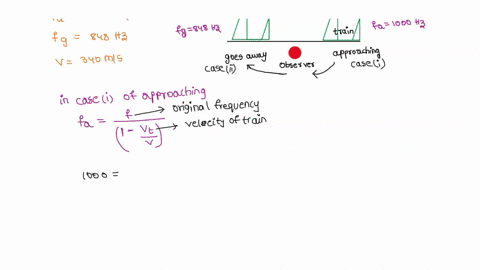 fg = 848 Hz
V = 340 m/s
fg = 848 Hz
train
fa = 1000 Hz
goes away
case(ii)
observer
approaching
case(i)
in case(i) of approaching
fa = f / (1 - Vt/V)
original frequency
velocity of train
1000 =